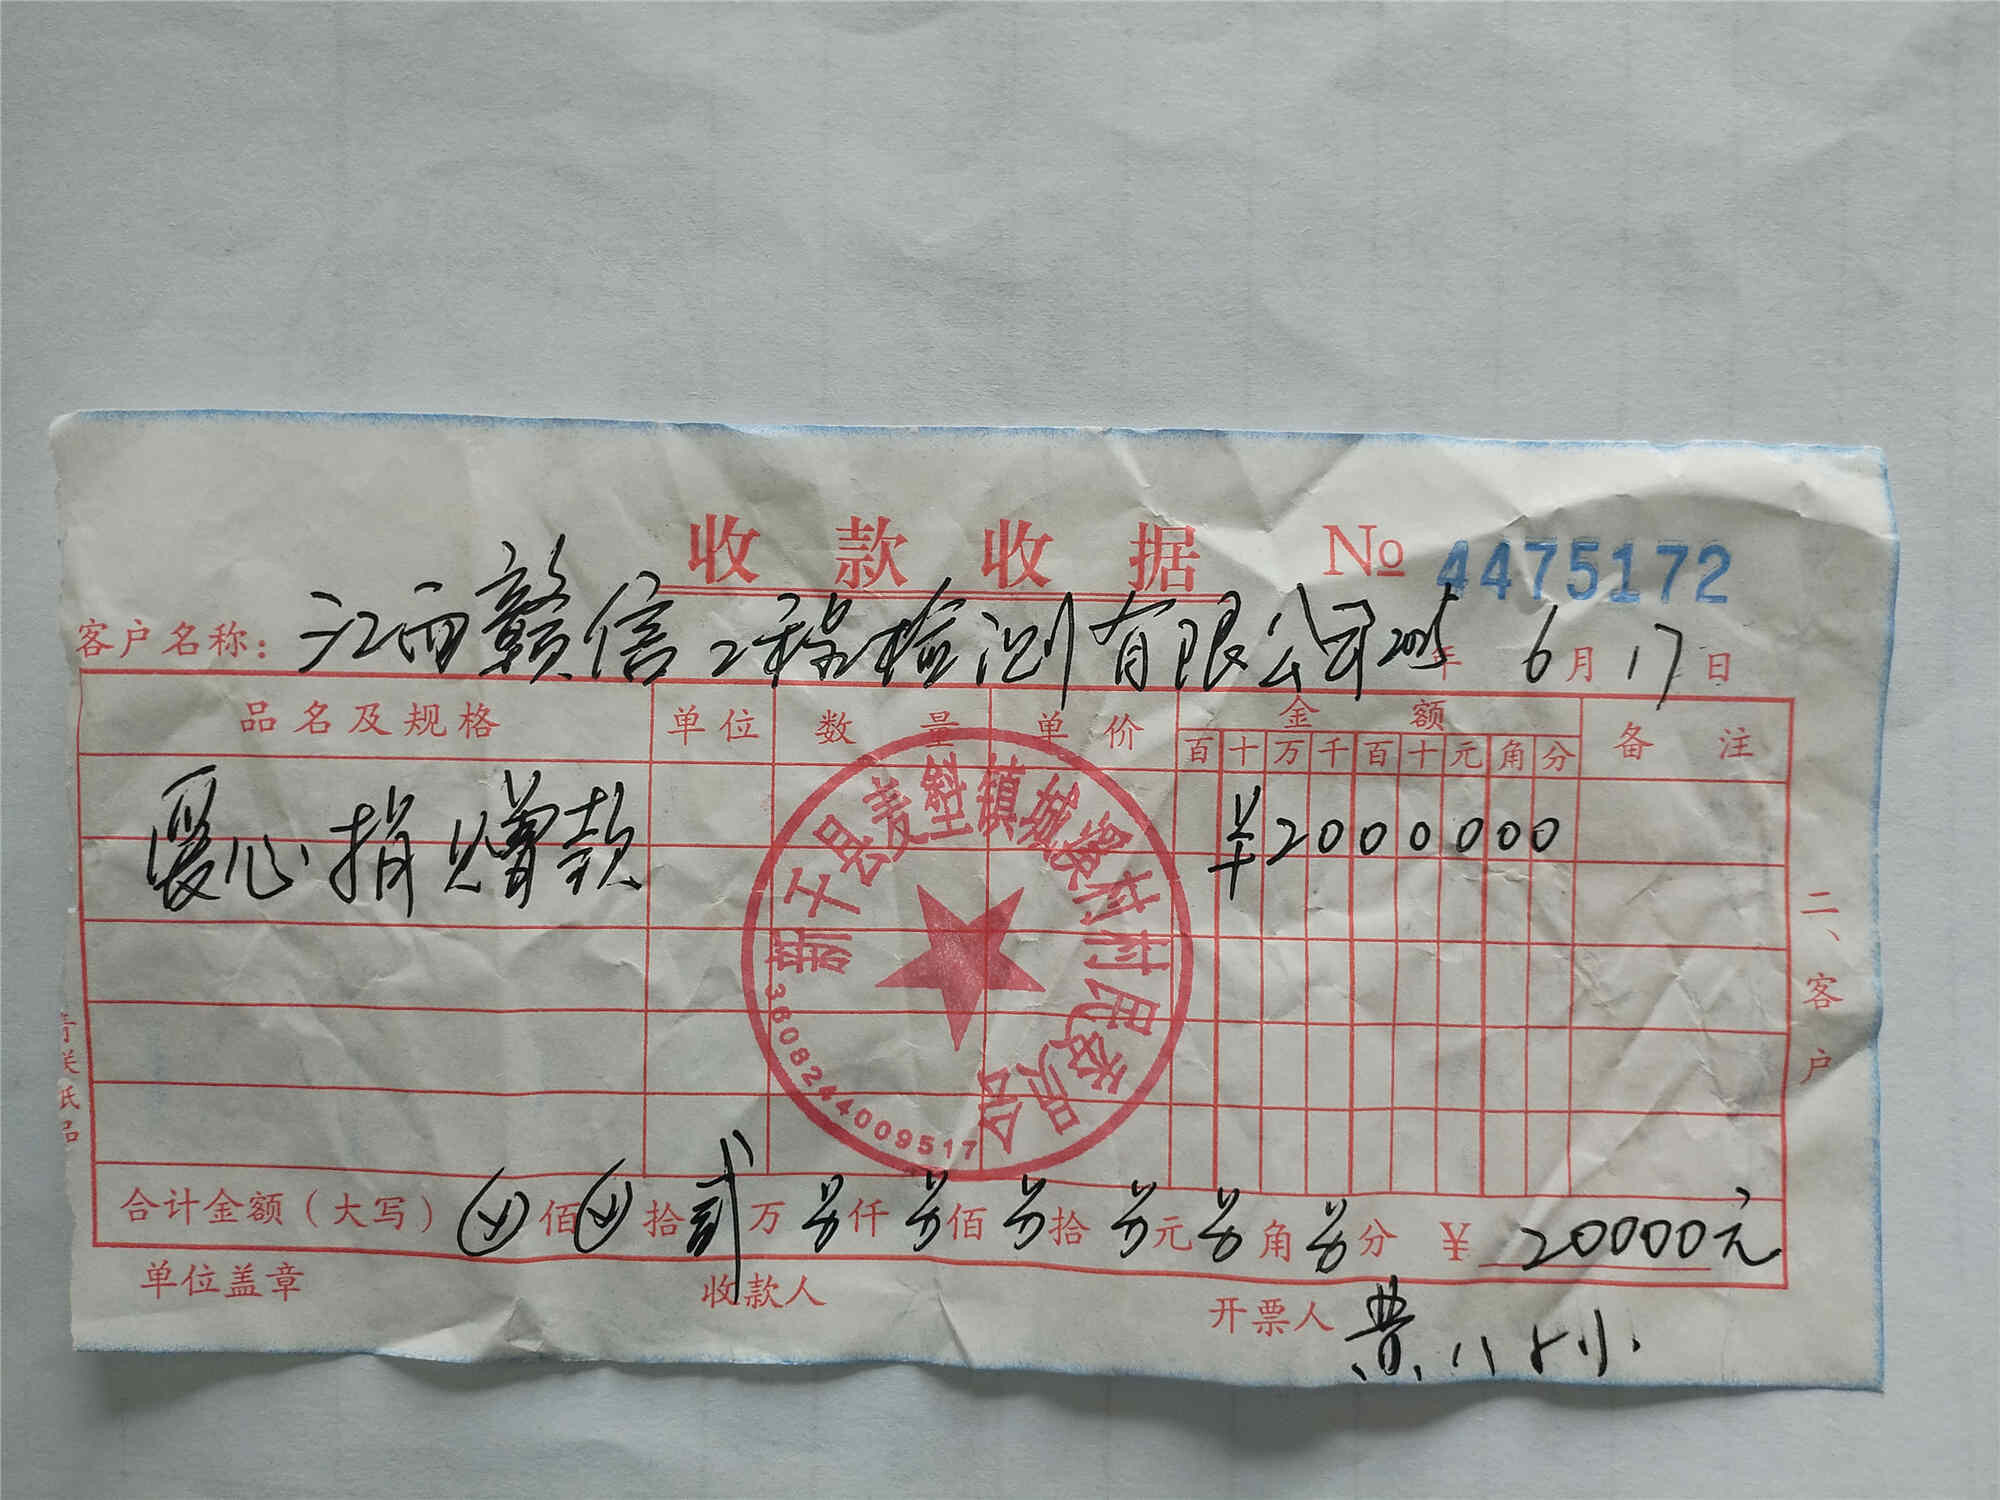 收款收据 No 4475172
客户名称：江西赣信工程检测有限公司 2025年 6月17日
品名及规格 单位 数量 单价 金额 备注
百 十 万 千 百 十 元 角 分
爱心捐赠款 ¥2000000
新干县麦㙦镇城溪村村民委员会
3608244009517
二、客户
合计金额（大写） 佰 拾 贰万 零仟 零佰 零拾 零元 零角 零分 ¥ 20000元
单位盖章 收款人 开票人 黄